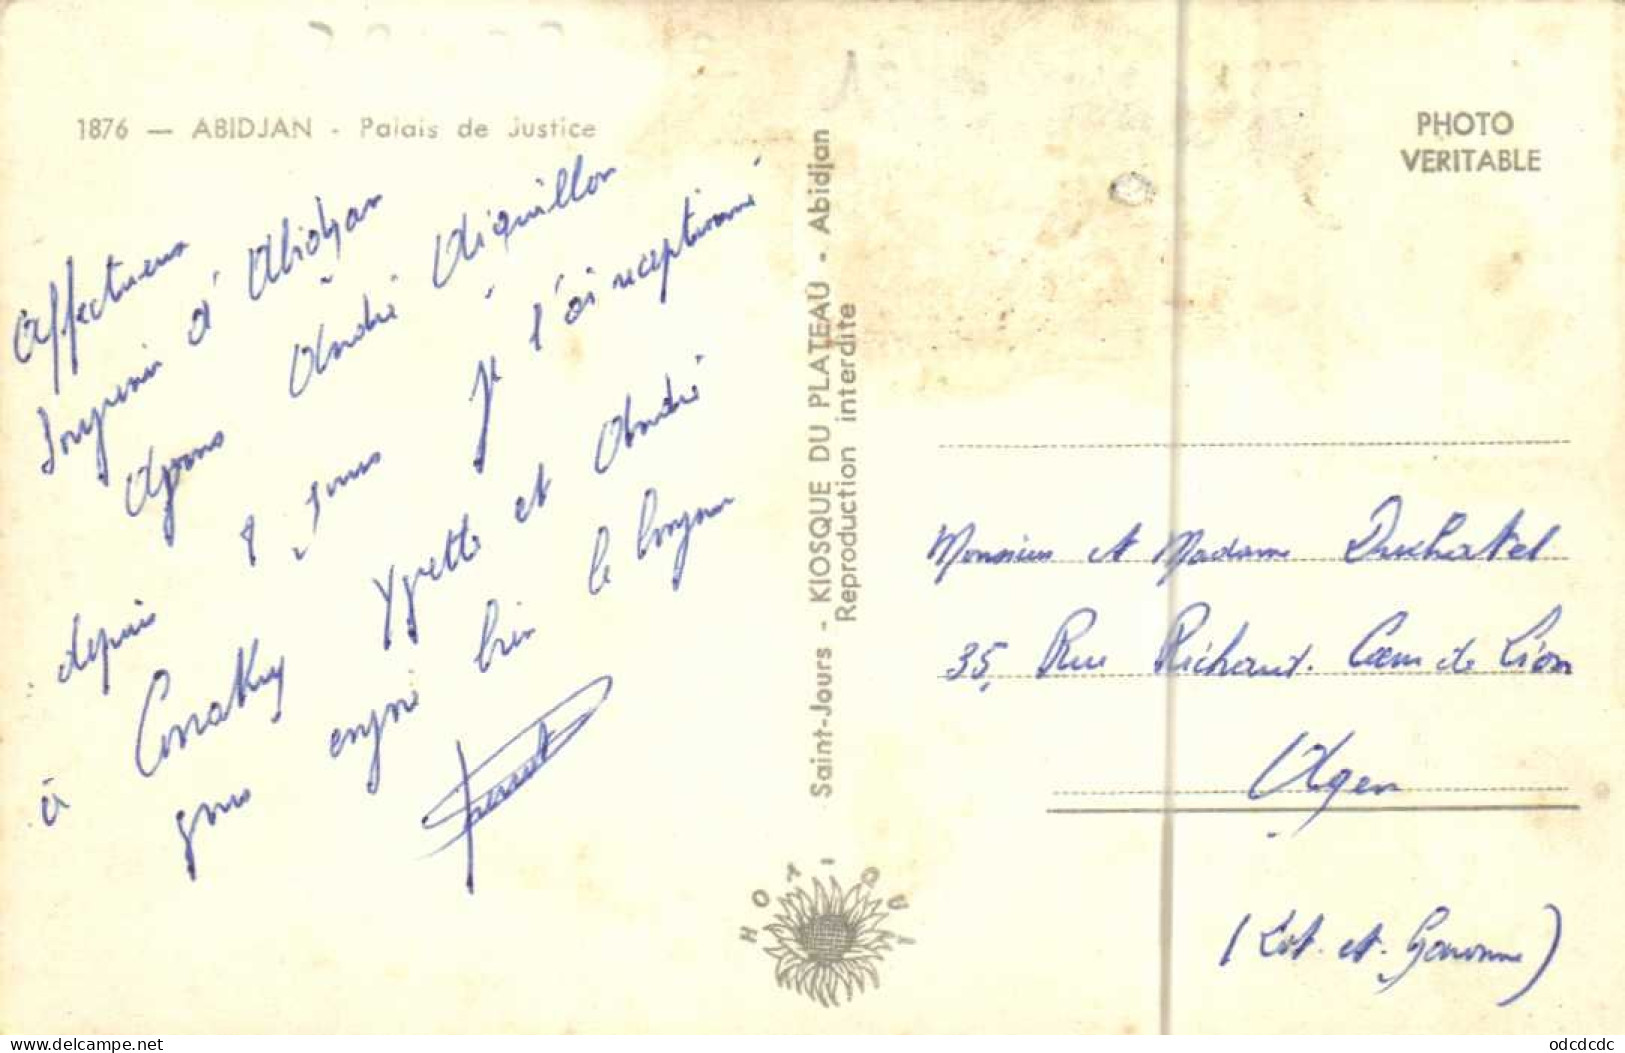 1876 — ABIDJAN - Palais de Justice
Affectueux
souvenir d'Abidjan
Avons André Aiguillon
depuis 8 jours je l'ai réceptionné
à Conakry Yvette et André
vous envoie bien le bonjour
Saint-Jours - KIOSQUE DU PLATEAU - Abidjan
Reproduction interdite
PHOTO
VERITABLE
Monsieur et Madame Duchatel
35, Rue Richard. Cœur de Lion
Agen
(Lot. et. Garonne)
HOTIQUE
www.delcampe.net
odcdcdc